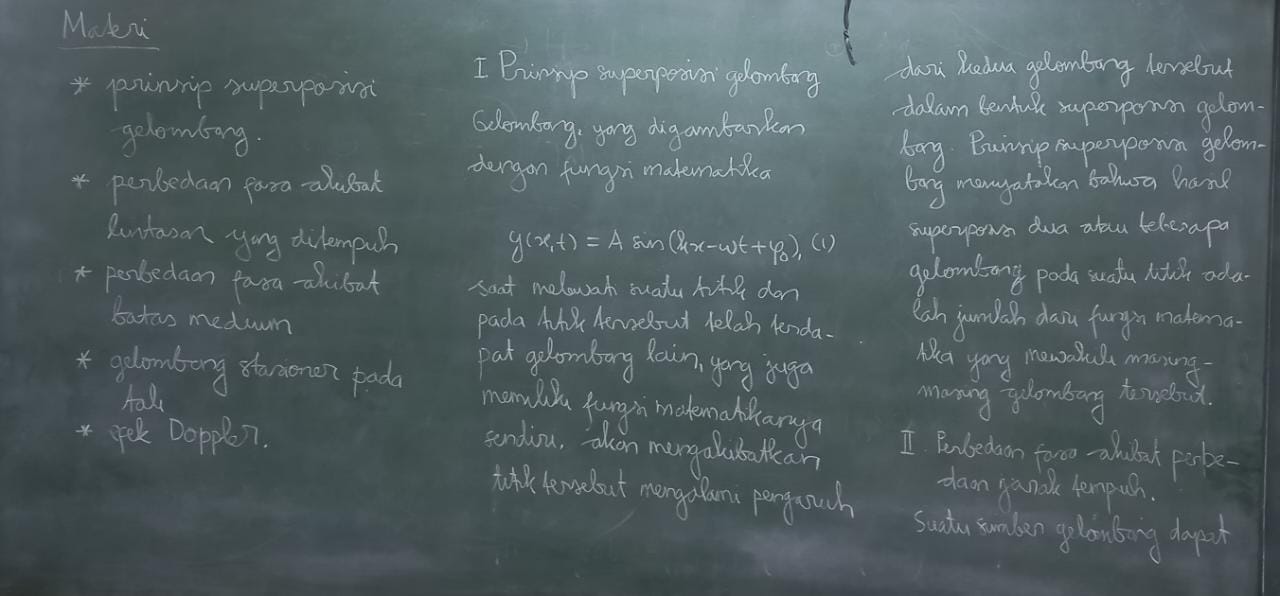 Materi
* prinsip superposisi
gelombang.
* perbedaan fasa akibat
lintasan yang ditempuh
* perbedaan fasa akibat
batas medium
* gelombang stasioner pada
tali
* efek Doppler.
I Prinsip superposisi gelombang
Gelombang, yang digambarkan
dengan fungsi matematika
y(x,t) = A sin(kx-ωt+φ₀), (1)
saat melewati suatu titik dan
pada titik tersebut telah terda-
pat gelombang lain, yang juga
memiliki fungsi matematikanya
sendiri, akan mengakibatkan
titik tersebut mengalami pengaruh
dari kedua gelombang tersebut
dalam bentuk superposisi gelom-
bang. Prinsip superposisi gelom-
bang menyatakan bahwa hasil
superposisi dua atau beberapa
gelombang pada suatu titik ada-
lah jumlah dari fungsi matema-
tika yang mewakili masing-
masing gelombang tersebut.
II. Perbedaan fasa akibat perbe-
daan jarak tempuh.
Suatu sumber gelombang dapat